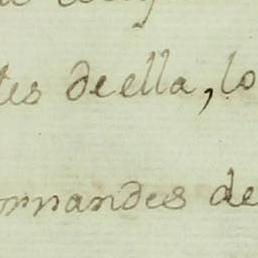 tes deella, lo
ornandes de